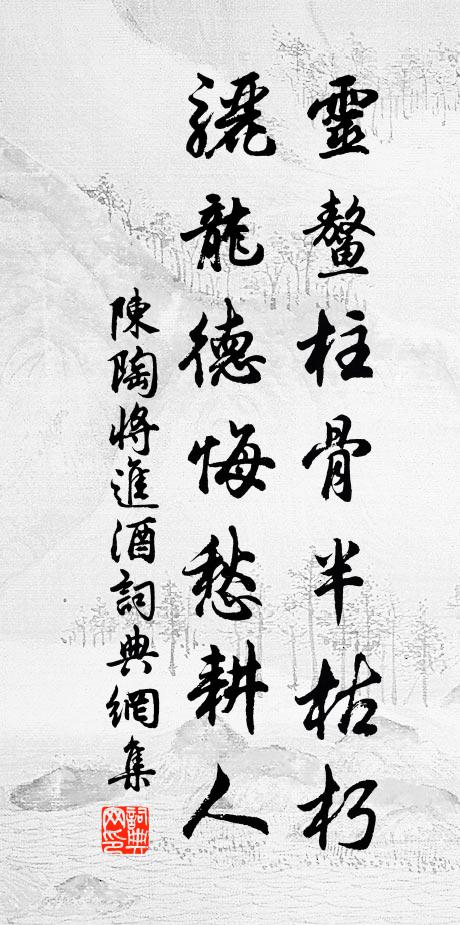 靈鰲柱骨半枯朽
驪龍德悔愁耕人
陳陶將進酒詞典網集
詞典網印